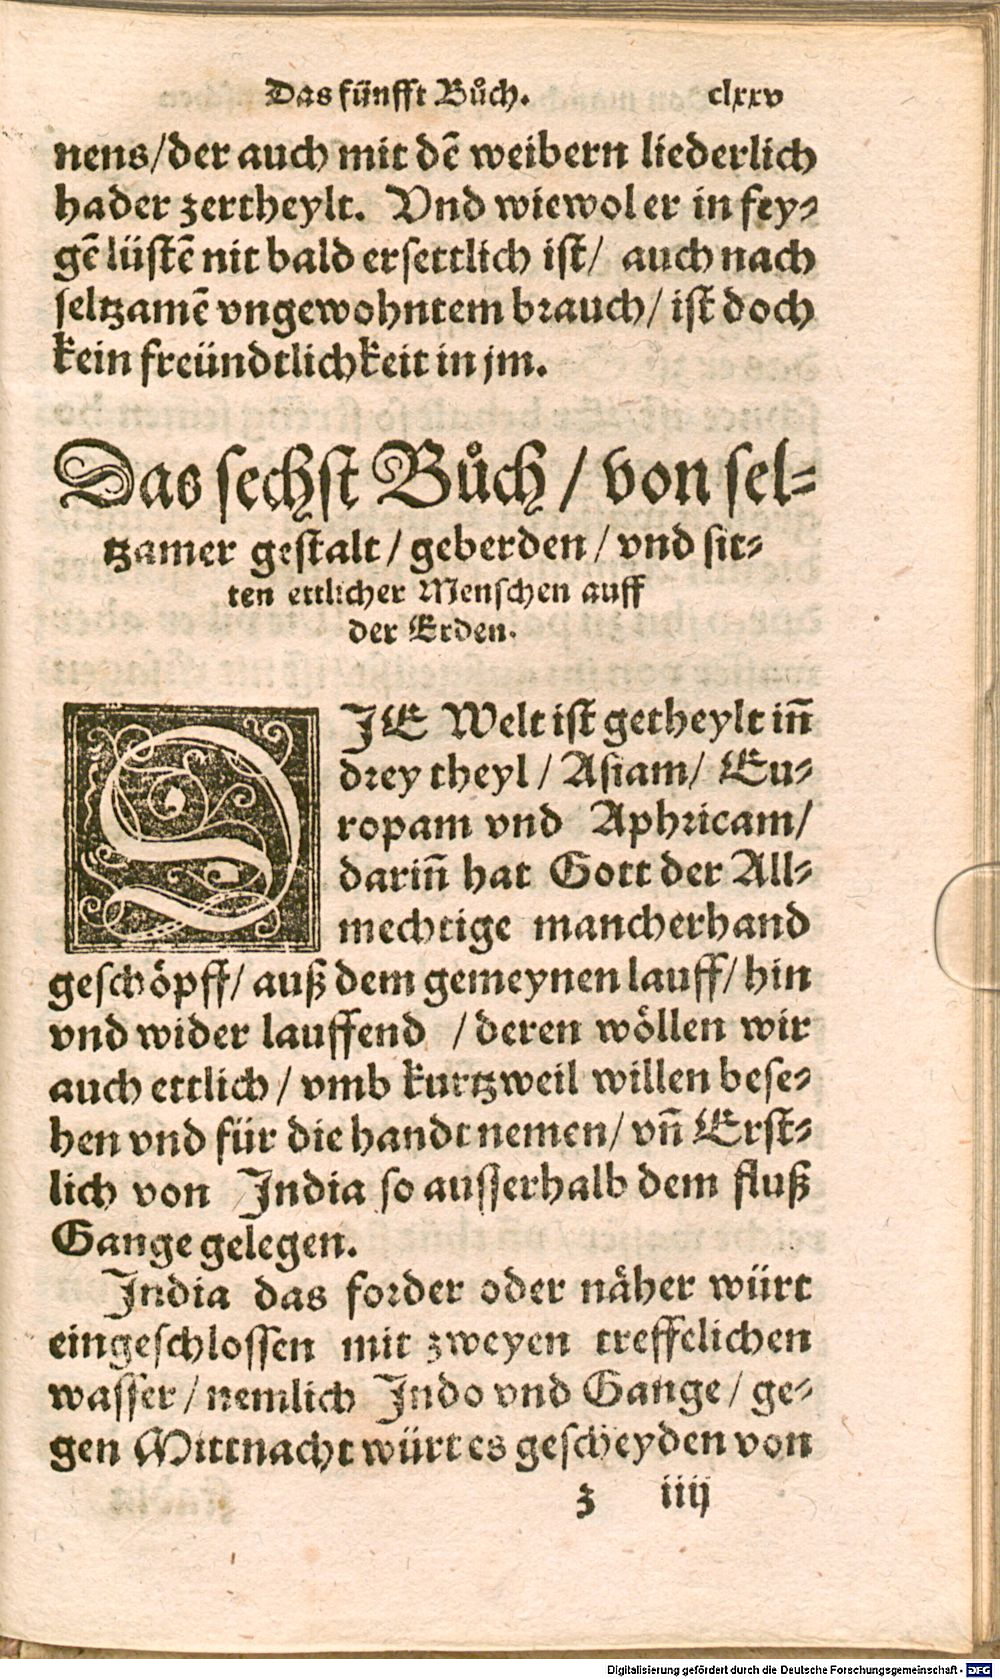 Das fünfft Bůch. clxxv
nens/der auch mit dē weibern liederlich
hader zertheylt. Vnd wiewol er in fey⸗
gē lüstē nit bald ersettlich ist/ auch nach
seltzamē vngewohntem brauch/ ist doch
kein freündtlichkeit in jm.
Das sechst Bůch/ von sel⸗
tzamer gestalt/ geberden/ vnd sit⸗
ten ettlicher Menschen auff
der Erden.
DIE Welt ist getheylt iñ
drey theyl/ Asiam/ Eu⸗
ropam vnd Aphricam/
dariñ hat Gott der All⸗
mechtige mancherhand
geschöpff/ auß dem gemeynen lauff/ hin
vnd wider lauffend /deren wöllen wir
auch ettlich/ vmb kurtzweil willen bese⸗
hen vnd für die handt nemen/ vñ Erst⸗
lich von India so ausserhalb dem fluß
Gange gelegen.
India das forder oder näher würt
eingeschlossen mit zweyen treffelichen
wasser/ nemlich Indo vnd Gange/ ge⸗
gen Mittnacht würt es gescheyden von
z iiij
Digitalisierung gefördert durch die Deutsche Forschungsgemeinschaft - DFG